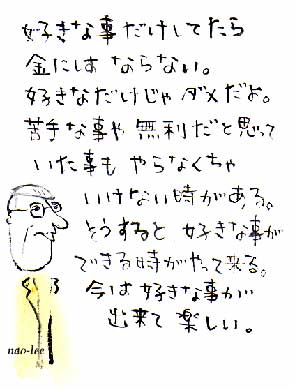 好きな事だけしてたら
金にしは ならない。
好きなだけじゃ ダメだよ。
苦手な事や 無利だと思って
いた事も やらなくちゃ
いけない時がある。
そうすると 好きな事が
できる時がやって来る。
今は好きな事が
出来て 楽しい。
nao-lee